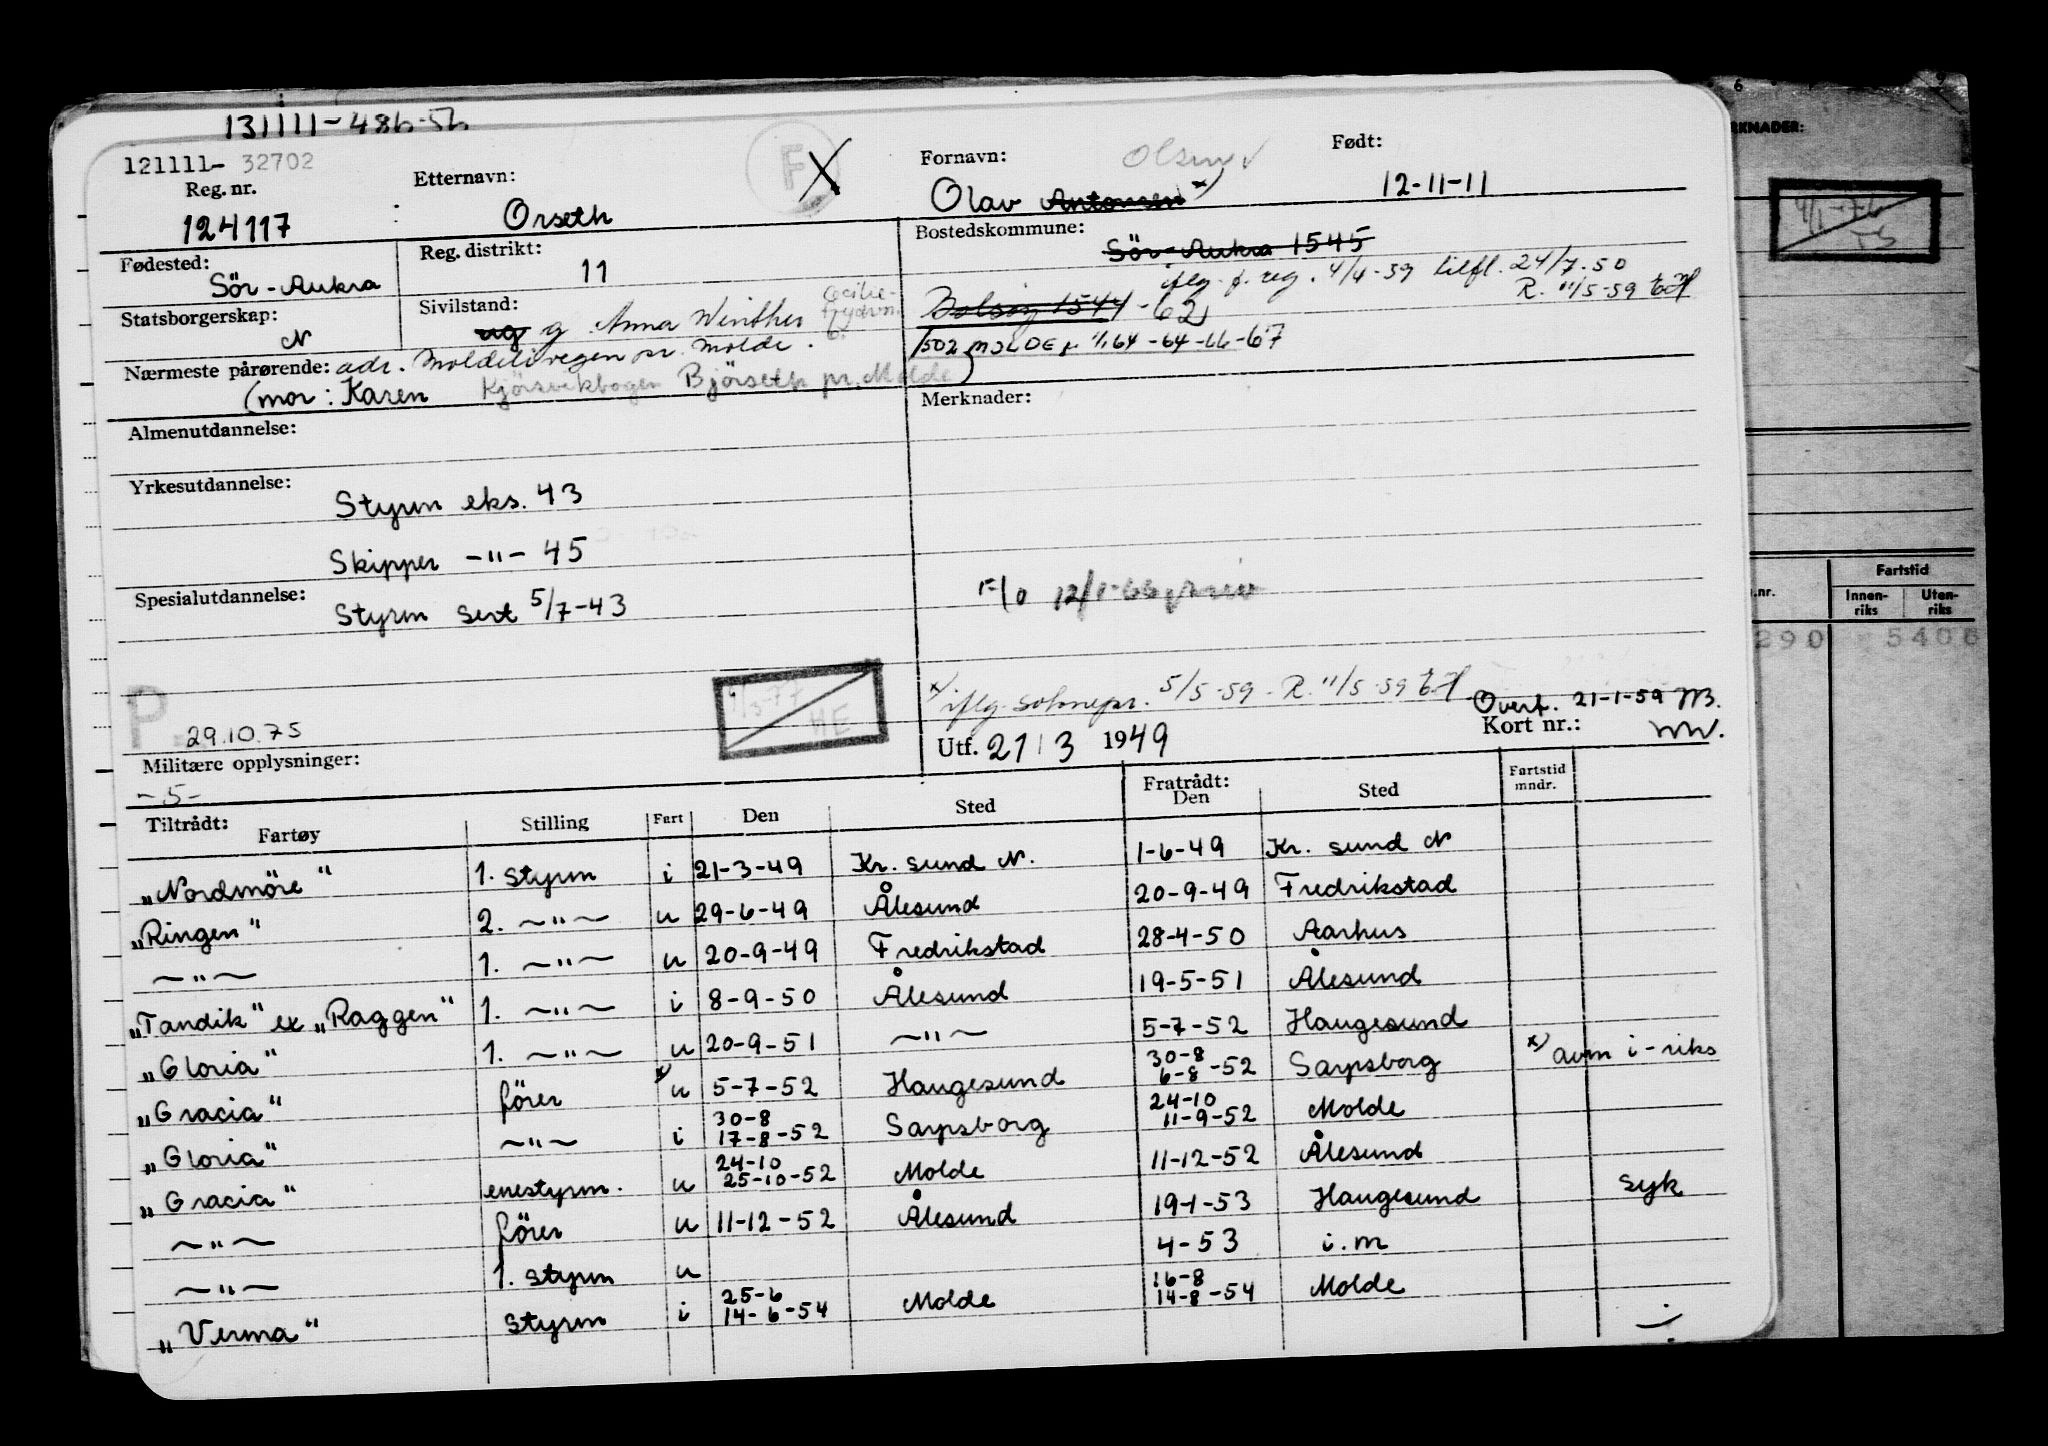 131111-486-56
121111- 32702
Reg. nr.
124117
Etternavn:
Orseth
F
X
Fornavn:
Olav Antonsen x)
Født:
12-11-11
Fødested:
Sör-Aukra
Reg. distrikt:
11
Bostedskommune:
Sör-Aukra 1545
iflg. f. reg. 4/4-59 tilfl. 24/7-50
R. 11/5-59
Bolsöy 1544 - 62
1502 MOLDE 1/1 64-64-66-67
Statsborgerskap:
N
Sivilstand:
ug g. Anna Winther
Nærmeste pårørende: adr. Moldelivegen pr. Molde.
(mor: Karen Kjörsvikbogen Björseth pr. Molde)
Almenutdannelse:
Merknader:
Yrkesutdannelse:
Styrm eks. 43
Skipper -"- 45
Spesialutdannelse:
Styrm sert 5/7-43
P
29.10.75
HE
x) iflg. 5/5-59 - R. 11/5-59
Overf. 21-1-59
Militære opplysninger:
-5-
Utf. 21/3 1949
Kort nr.:
Tiltrådt:
Fartøy Stilling Fart Den Sted Fratrådt: Den Sted Fartstid mndr.
„Nordmöre" 1. styrm i 21-3-49 Kr. sund N. 1-6-49 Kr. sund N
„Ringen" 2. -"- u 29-6-49 Ålesund 20-9-49 Fredrikstad
-"- 1. -"- u 20-9-49 Fredrikstad 28-4-50 Aarhus
„Tandik" ex „Raggen" 1. -"- i 8-9-50 Ålesund 19-5-51 Ålesund
„Gloria" 1. -"- u 20-9-51 -"- 5-7-52 Haugesund
„Gracia" förer x) u 5-7-52 Haugesund 30-8 6-8-52 Sarpsborg x) avm i-riks
„Gloria" -"- i 30-8 17-8-52 Sarpsborg 24-10 11-9-52 Molde
„Gracia" enestyrm. u 24-10 25-10-52 Molde 11-12-52 Ålesund
-"- förer u 11-12-52 Ålesund 19-1-53 Haugesund syk
-"- 1. styrm u 4-53 i.m
„Verma" styrm i 25-6 14-6-54 Molde 16-8 14-8-54 Molde
RKNADER:
Fartstid
.nr. Innen-riks Uten-riks
290 5406